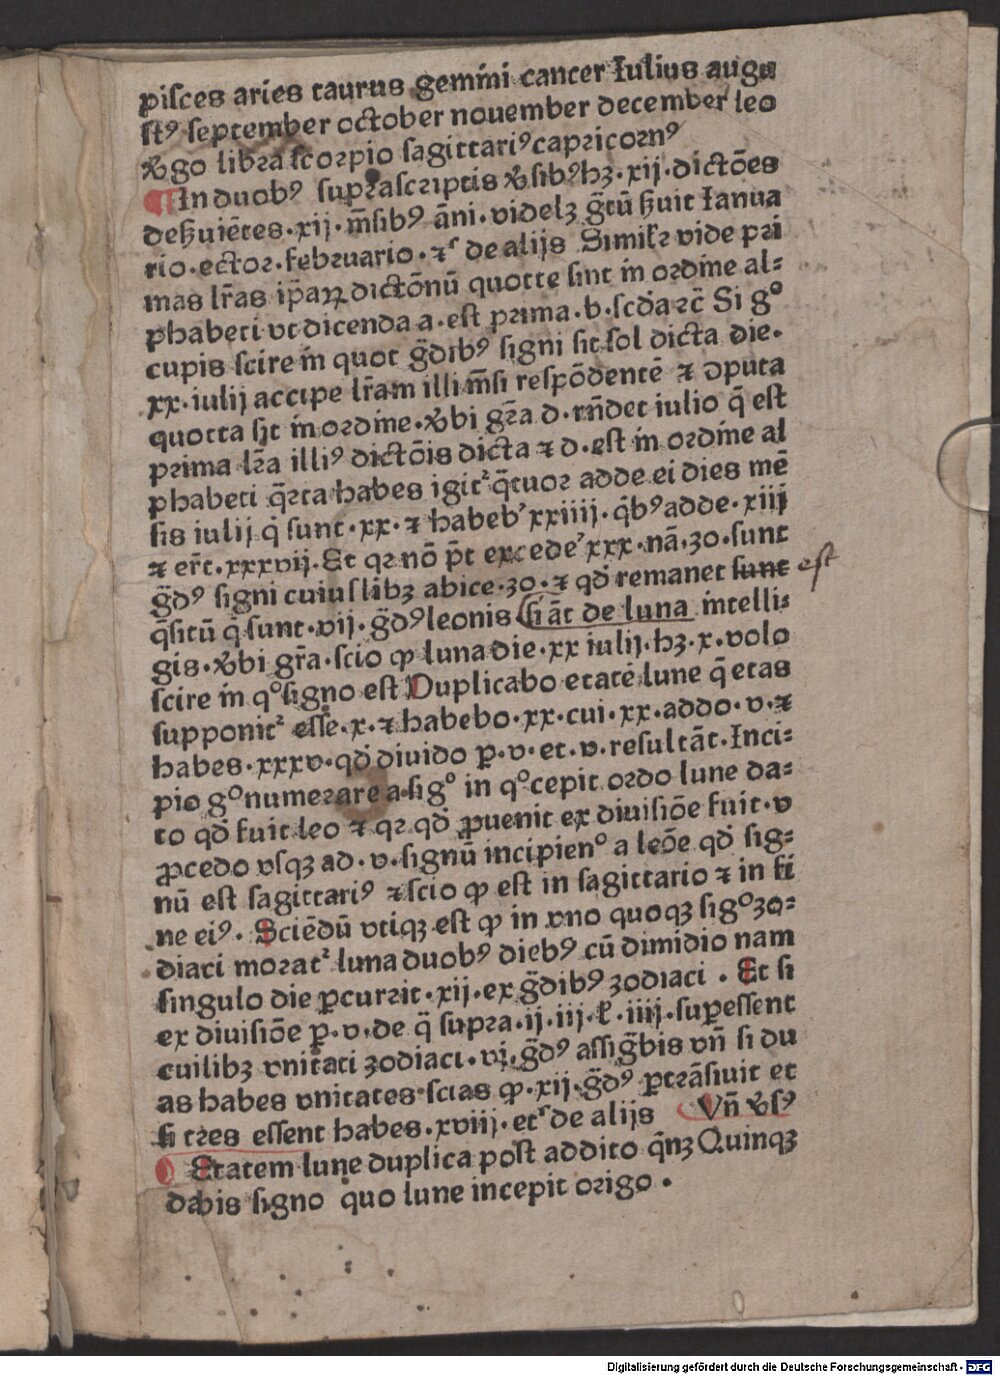 piſces aries taurus gemini cancer Iulius augu
ſtꝰ ſeptember october nouember december leo
v̉go libra ſcorpio ſagittariꝰ capricornꝰ
¶ In duobꝰ ſupraſcriptis v̉ſibꝰ hꝫ · xij · dictōes
deẜuiētes · xij · m̄ſibꝰ āni · videlꝫ g̃tū ẜuit Ianua
rio · ector · februario · ⁊ᷤ de alijs Similr vide pri
mas lr̄as ip̄aꝝ dictōnū quotte ſint in ordine al⸗
phabeti vt dicenda a · eſt prima · b · ſcd̄a ⁊c̄ Si gº
cupis ſcire in quot g̃dibꝰ ſigni ſit ſol dicta die ·
xx · iulij accipe lr̄am illi m̄ſi reſpōdentē ⁊ dputa
quotta ſit in ordine · v̉bi gr̄a d · rn̄det iulio q̄ eſt
prima lr̄a illiꝰ dictōis dicta ⁊ d · eſt in ordine al
phabeti q̄rta habes igit᷑ q̄tuor adde ei dies mē
ſis iulij q̇ ſunt · xx · ⁊ habeb᷒ xxiiij · q̇bꝰ adde · xiij
⁊ er̄t · xxxvij · Et qꝛ nō p̄t excede᷒ xxx · nā · 30 · ſunt
g̃dꝰ ſigni cuiuſlibꝫ abice · 30 · ⁊ qd̄ remanet ſunt eſt
q̄ſitū q̇ ſunt · vij · g̃dꝰ leonis ſi āt de luna intelli⸗
gis · v̉bi gr̄a · ſcio ꝙ luna die · xx iulij · hꝫ · x · volo
ſcire in qº ſigno eſt Duplicabo etatē lune q̄ etas
ſupponit᷑ eſſe · x · ⁊ habebo · xx · cui · xx · addo · v · ⁊
habes · xxxv · qd̄ diuido ꝑ · v · et · v · reſultāt · Inci⸗
pio gº numerare a · ſigº in qº cepit ordo lune da⸗
to qd̄ fuit leo ⁊ qꝛ qd̄ ꝓuenit ex diuiſiōe fuit · v
ꝓcedo vſqꝫ ad · v · ſignū incipienº a leōe qd̄ ſig⸗
nū eſt ſagittariꝰ ⁊ ſcio ꝙ eſt in ſagittario ⁊ in fi
ne eiꝰ · Sciēdū vtiqꝫ eſt ꝙ in vno quoqꝫ ſigº zo⸗
diaci morat᷑ luna duobꝰ diebꝰ cū dimidio nam
ſingulo die ꝑcurrit · xij · ex g̃dibꝰ zodiaci · Et ſi
ex diuiſiōe ꝑ · v · de q̄ ſupra · ij · iij · ł · iiij · ſuꝑeſſent
cuilibꝫ vnitati zodiaci · vj · g̃dꝰ aſſig̃bis vn̄ ſi du
as habes vnitates ſcias ꝙ · xij · g̃dꝰ ꝑtrāſiuit et
ſi tres eſſent habes · xviij · etᷤ de alijs Vn̄ v̉ſꝰ
Etatem lune duplica poſt addito q̄nꝫ Quinqꝫ
dabis ſigno quo lune incepit origo ·
Digitalisierung gefördert durch die Deutsche Forschungsgemeinschaft · DFG